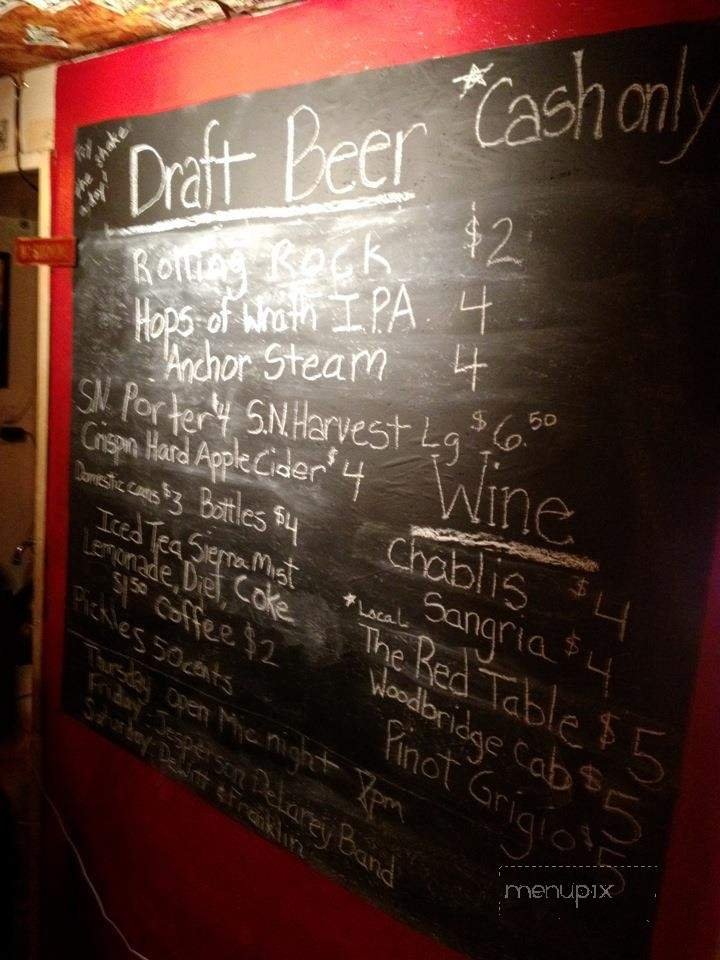 *Cash only
Draft Beer
Rolling Rock $2
Hops of Wrath I.P.A 4
Anchor Steam 4
S.N. Porter $4 S.N. Harvest Lg $6.50
Crispin Hard Apple Cider $4
Domestic cans $3 Bottles $4
Iced Tea, Sierra Mist
Lemonade, Diet, Coke
$1.50 Coffee $2
Pickles 50 cents
Thursday Open Mic night 8pm
Friday: Jesperson Delaney Band
Saturday: Dewitt & Franklin
Wine
Chablis $4
Sangria $4
*Local
The Red Table $5
Woodbridge Cab $5
Pinot Grigio $5
menupix